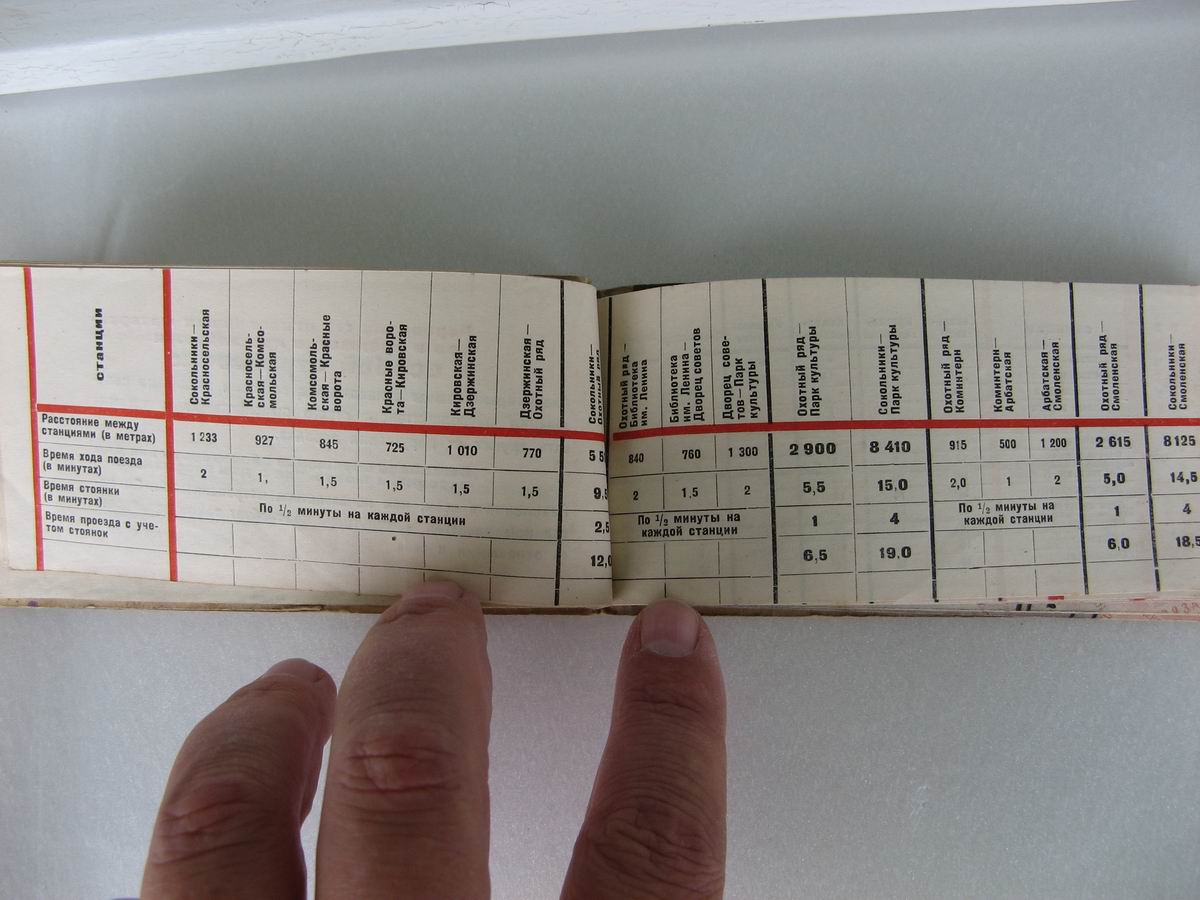 станции
Сокольники—
Красносельская
Красносель-
ская—Комсо-
мольская
Комсомоль-
ская—Красные
ворота
Красные воро-
та—Кировская
Кировская—
Дзержинская
Дзержинская—
Охотный ряд
Сокольники—
Охотный ряд
Охотный ряд—
Библиотека
им. Ленина
Библиотека
им. Ленина—
Дворец советов
Дворец сове-
тов—Парк
культуры
Охотный ряд—
Парк культуры
Сокольники—
Парк культуры
Охотный ряд—
Коминтерн
Коминтерн—
Арбатская
Арбатская—
Смоленская
Охотный ряд—
Смоленская
Сокольники—
Смоленская
Расстояние между
станциями (в метрах)
1 233 927 845 725 1 010 770 840 760 1 300 2 900 8 410 915 500 1 200 2 615 8 125
Время хода поезда
(в минутах)
2 1, 1,5 1,5 1,5 1,5 9,5 2 1,5 2 5,5 15,0 2,0 1 2 5,0 14,5
Время стоянки
(в минутах)
По 1/2 минуты на каждой станции 2,5
По 1/2 минуты на
каждой станции
1 4
По 1/2 минуты на
каждой станции
1 4
Время проезда с уче-
том стоянок
12,0 6,5 19,0 6,0 18,5